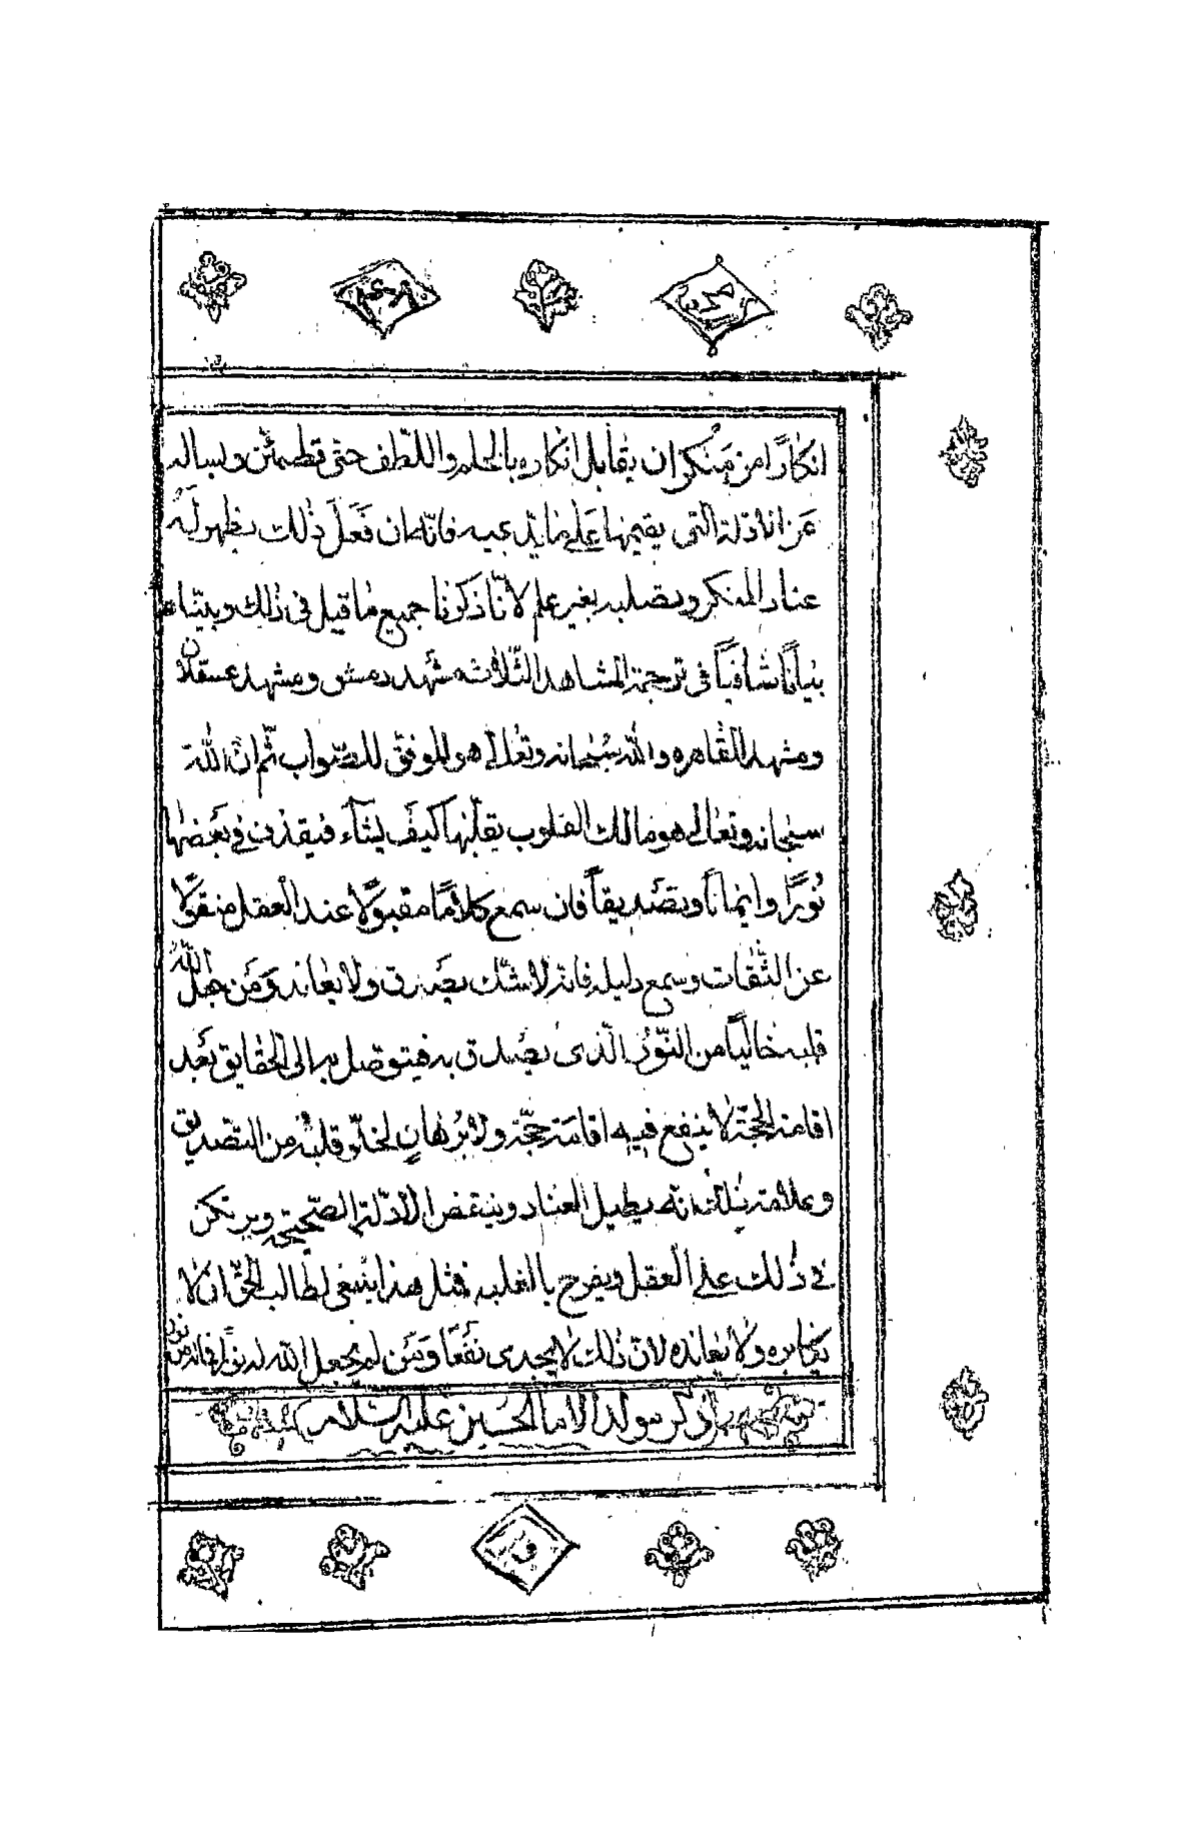 انكارًا من منكر ان يقابل انكاره بالحلم واللطف حتى تطمئن ويساله
عن الادلة التى يقيمها على ما يدعيه فانه ان فعل ذلك يظهر له
عناد المنكر وتصلبه بغير علم لانا ذكرنا جميع ما قيل فى ذلك وبيناه
بيانًا شافيًا فى ترجمة المشاهد الثلاثه مشهد دمشق ومشهد عسقلان
ومشهد القاهره والله سبحانه وتعالى هو الموفق للصواب ثم ان الله
سبحانه وتعالى هو مالك القلوب يقلبها كيف يشآء فيقذف فى بعضها
نورًا وايمانًا وتصديقًا فان سمع كلامًا مقبولًا عند العقل منقولًا
عن الثقات وسمع دليله فانه لا شك يصدق ولا يعاند ومن جعل الله
قلبه خاليًا من النور الذى يصدق به فيتوصل به الى الحقايق بعد
اقامة الحجة لا ينفع فيه اقامة حجة ولا برهان لخلو قلبه من التصديق
وعلامة ذلك انه يطيل العناد وينقض الادلة الصحيحه ويرتكن
فى ذلك على العقل ويفرح بالغلبه فمثل هذا ينبغى لطالب الحق ان لا
يكابره ولا يعانده لان ذلك لا يجدى نفعًا ومن لم يجعل الله له نورًا فما له من نور
ذكر مولد الامام الحسين عليه السلام